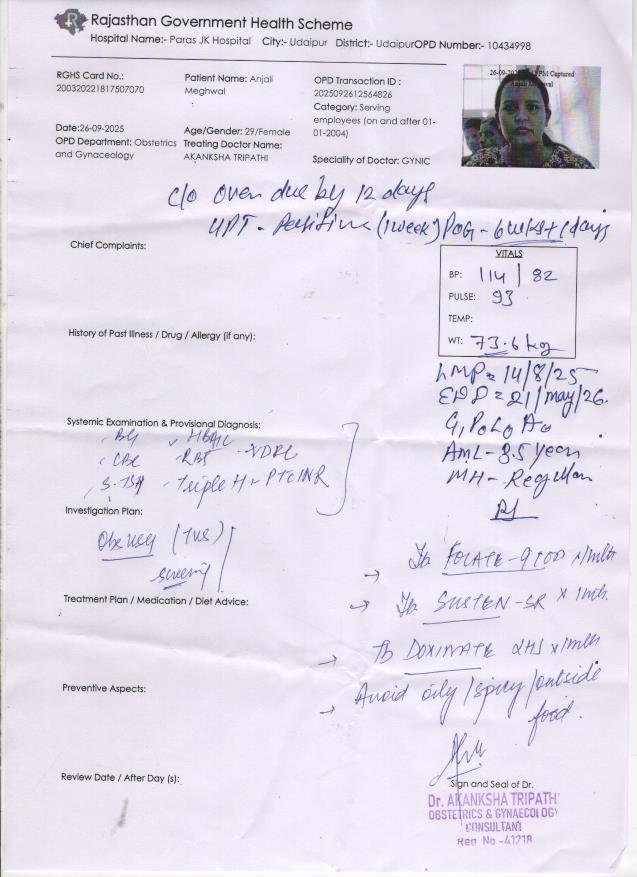 Rajasthan Government Health Scheme
Hospital Name:- Paras JK Hospital City:- Udaipur District:- UdaipurOPD Number:- 10434998
RGHS Card No.:
200320221817507070
Patient Name: Anjali
Meghwal
OPD Transaction ID :
2025092612564826
Category: Serving
employees (on and after 01-
01-2004)
Date:26-09-2025
OPD Department: Obstetrics
and Gynaceology
Age/Gender: 29/Female
Treating Doctor Name:
AKANKSHA TRIPATHI
Speciality of Doctor: GYNIC
PM Captured
Anjali Meghwal
c/o Over due by 12 days
UPT - Positive (1 week) POG - 6 wks + 1 days
Chief Complaints:
VITALS
BP: 114 / 82
PULSE: 93
TEMP:
WT: 73.6 kg
History of Past Illness / Drug / Allergy (if any):
LMP = 14/8/25
EDD = 21/may/26
G1P0L0A0
AML - 3.5 years
MH - Regular
Systemic Examination & Provisional Diagnosis:
BG HBA1C
CBC RBS VDRL
S.TSH Triple H PTINR
Investigation Plan:
Obs usg (TVS)
screening
Rx
Tb FOLATE - 9 x 1mth
Treatment Plan / Medication / Diet Advice:
Tb SUSTEN - SR x 1mth
Tb DOXINATE 2HS x 1mth
Preventive Aspects:
Avoid oily / spicy / outside
food.
Review Date / After Day (s):
Sign and Seal of Dr.
Dr. AKANKSHA TRIPATHI
OBSTETRICS & GYNAECOLOGY
CONSULTANT
Reg No -41218